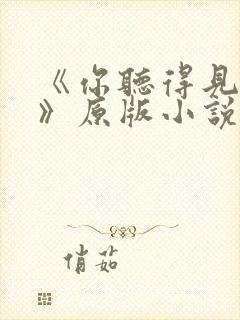 《你聽得見
》原版小說
俏茹